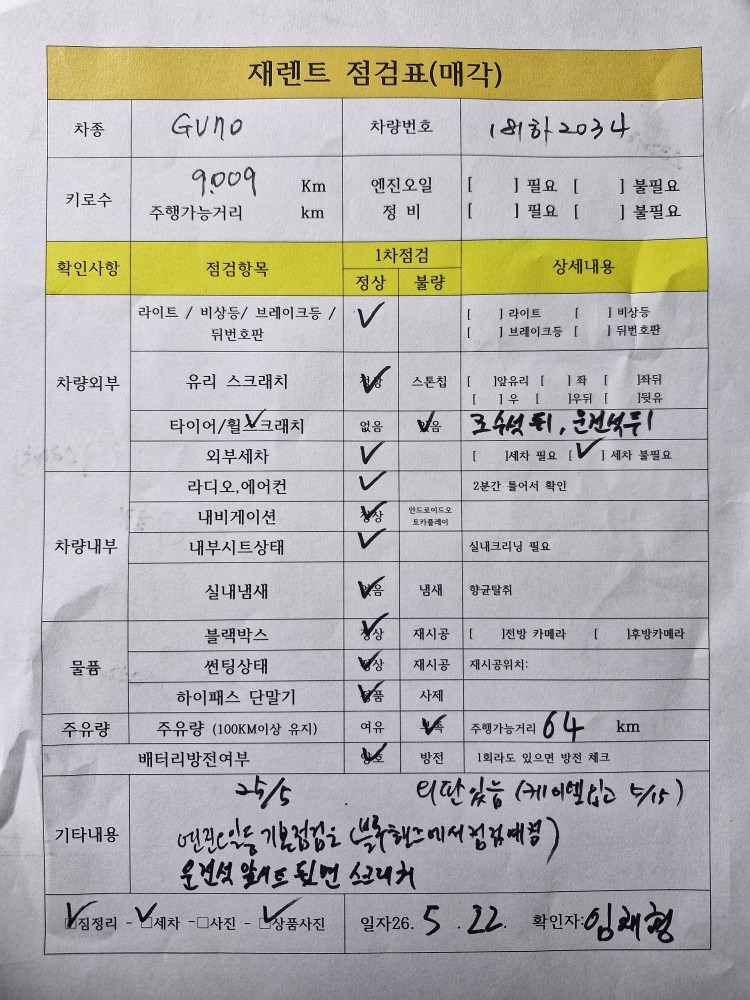 재렌트 점검표(매각)
차종 GV70 차량번호 181하2034
키로수 9.009 Km 엔진오일 [ ] 필요 [ ] 불필요
주행가능거리 km 정 비 [ ] 필요 [ ] 불필요
확인사항 점검항목 1차점검 상세내용
정상 불량
차량외부 라이트 / 비상등/ 브레이크등 / 뒤번호판 ✓ [ ] 라이트 [ ] 비상등
[ ] 브레이크등 [ ] 뒤번호판
유리 스크래치 정상 ✓ 스톤칩 [ ]앞유리 [ ] 좌 [ ]좌뒤
[ ] 우 [ ]우뒤 [ ]뒷유
타이어/휠스크래치 ✓ 없음 있음 ✓ 조수석 뒤, 운전석 뒤
외부세차 ✓ [ ]세차 필요 [ ✓ ] 세차 불필요
차량내부 라디오,에어컨 ✓ 2분간 틀어서 확인
내비게이션 정상 ✓ 안드로이드오토카플레이
내부시트상태 ✓ 실내크리닝 필요
실내냄새 없음 ✓ 냄새 향균탈취
물품 블랙박스 정상 ✓ 재시공 [ ]전방 카메라 [ ]후방카메라
썬팅상태 정상 ✓ 재시공 재시공위치:
하이패스 단말기 정품 ✓ 사제
주유량 주유량 (100KM이상 유지) 여유 부족 ✓ 주행가능거리 64 km
배터리방전여부 양호 ✓ 방전 1회라도 있으면 방전 체크
기타내용 25/5 외판있음 (케이엘입고 5/15)
엔진오일등 기본점검은 (블루핸즈에서 점검예정)
운전석 앞시트 뒷면 스크래치
✓ □짐정리 - ✓ □세차 -□사진 - ✓ □상품사진 일자26. 5 . 22. 확인자:임채형